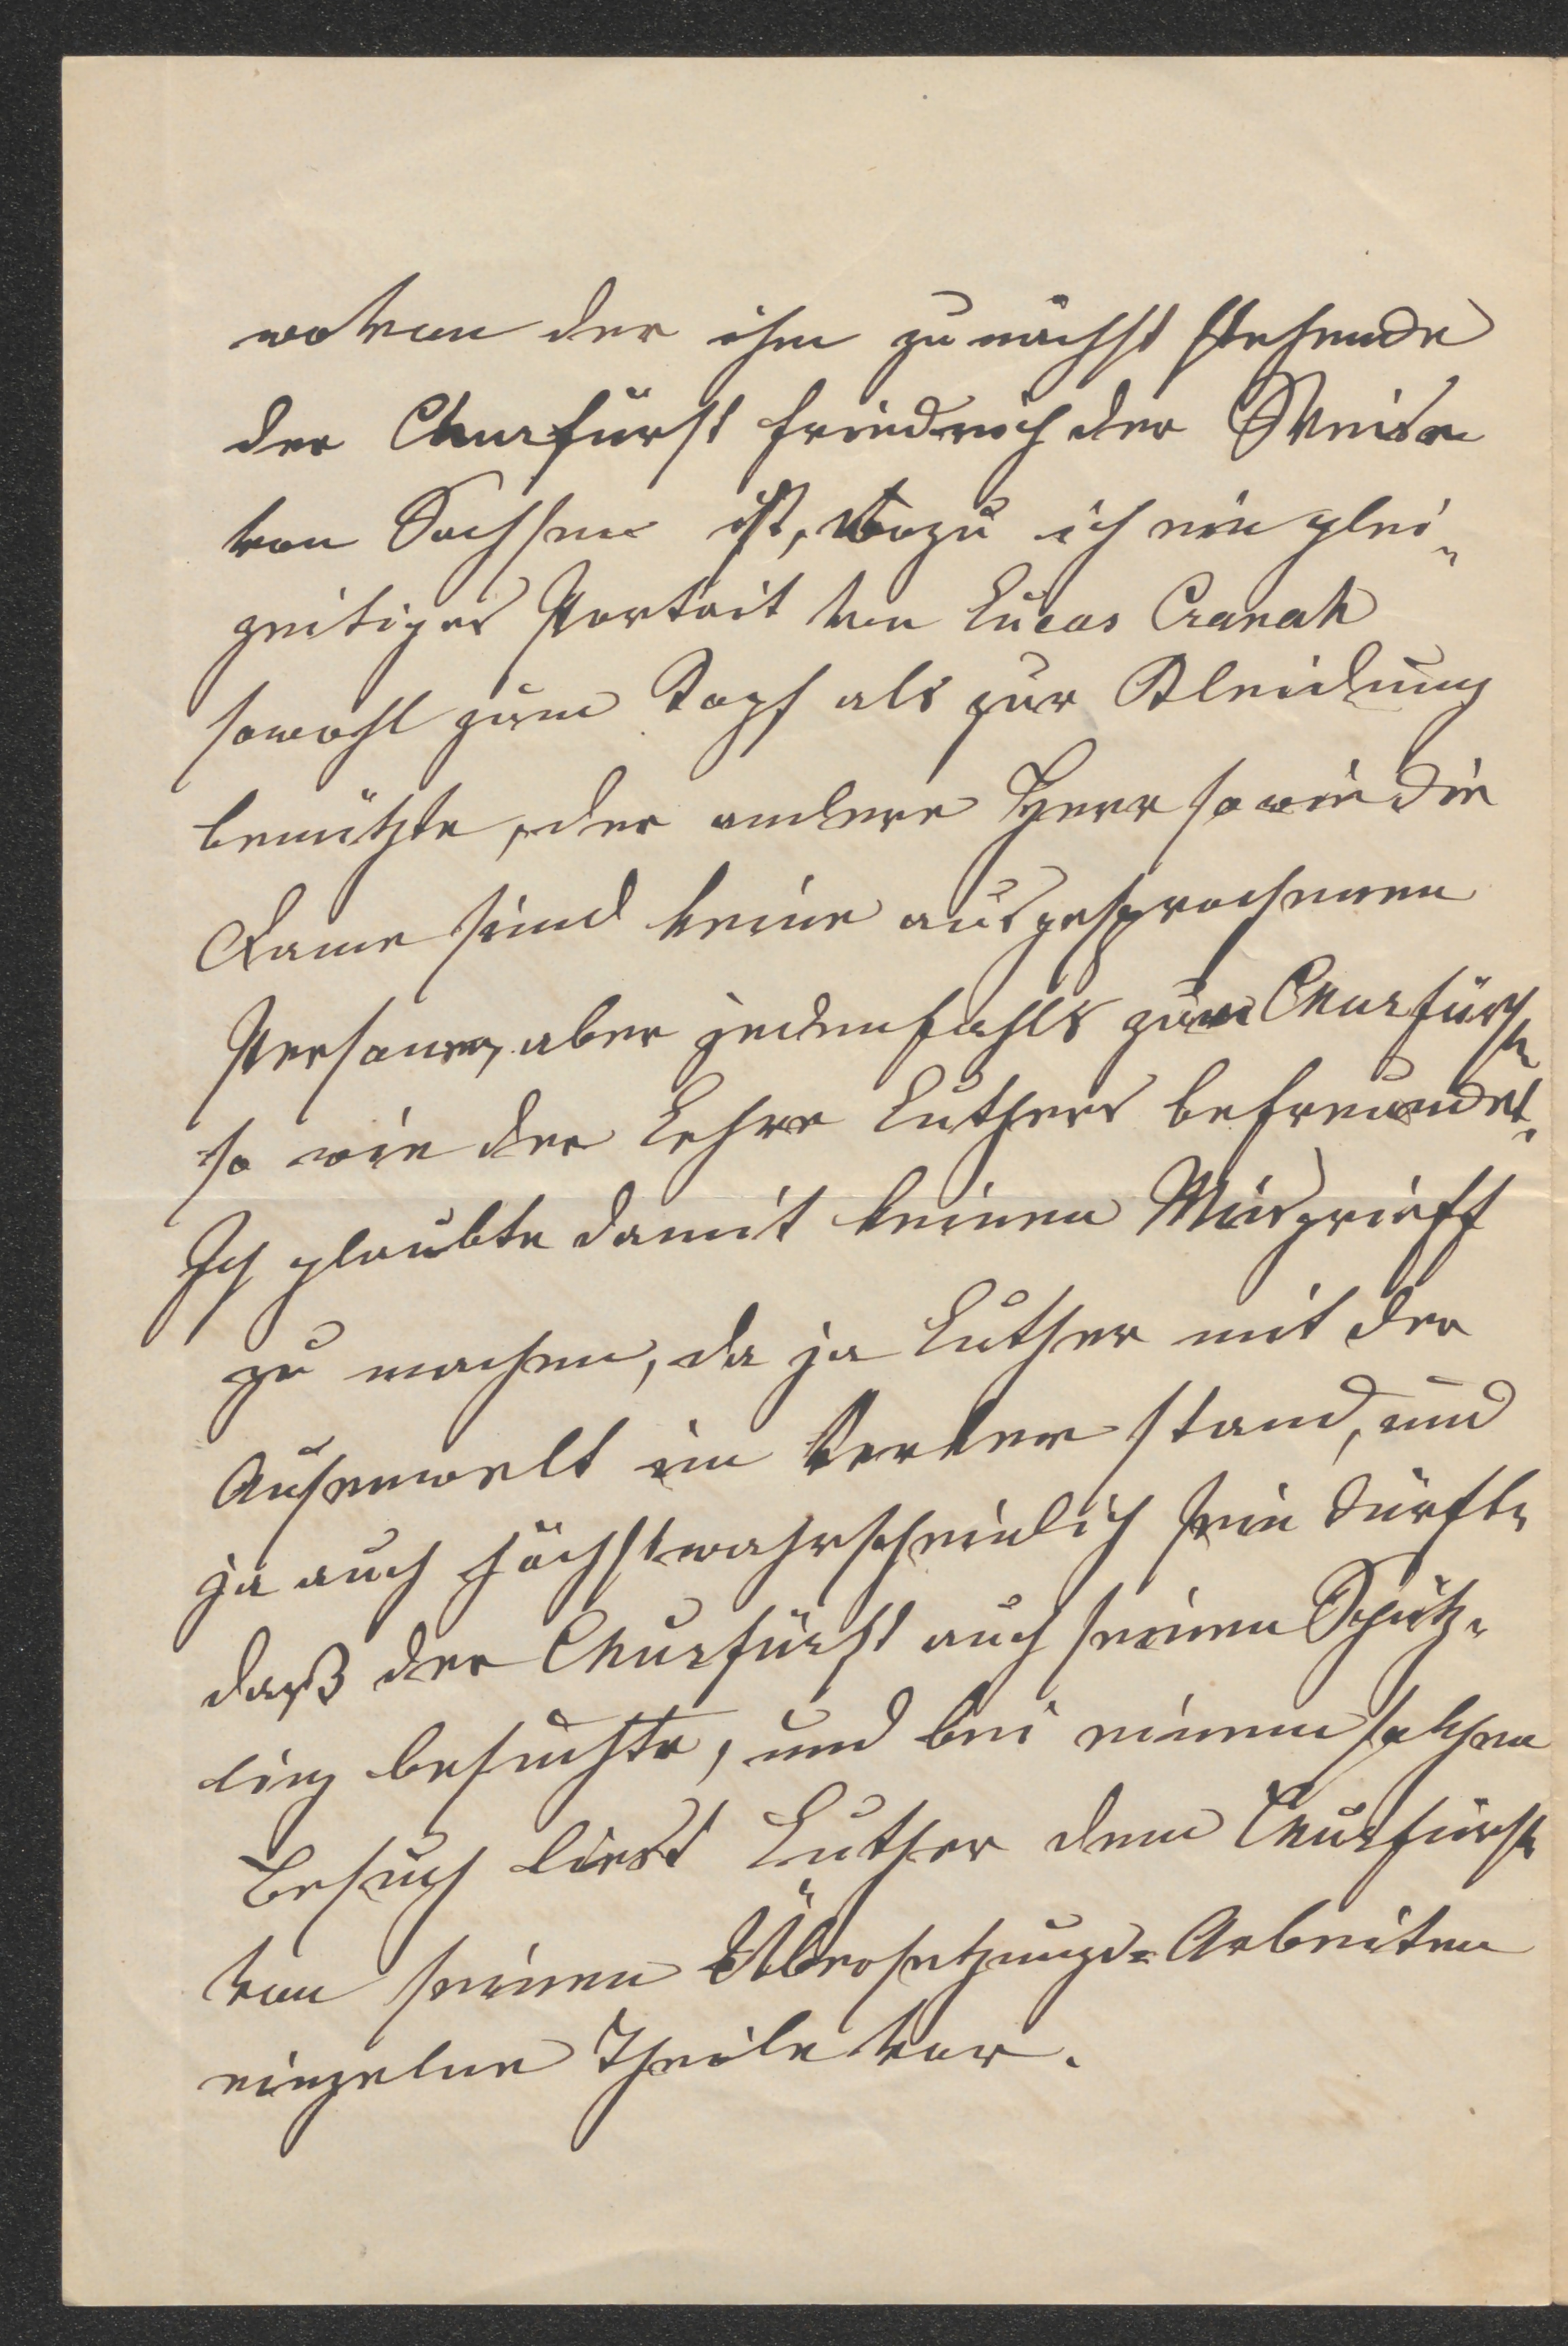 wovon der ihm zunächst stehende
der Churfürst Friedrich der Weise
von Sachsen ist, wozu ich ein glei„
zeitiges Portrait von Lucas Cranah
sowohl zum Kopf als zur Kleidung
benützte, der andere Herr sowie die
Dame sind keine ausgesprochenen
Personen, aber jedenfahls zum Churfürst
so wie der Lehre Luthers befreundet.
Ich glaubte damit keinen Misgrieff
zu machen, da ja Luther mit der
Ausenwelt im Verker stand, und
ja auch höchstwahrscheinlich sein dürfte
daß der Churfürst auch seinen Schütz„
ling besuchte, und bei einem solchen
Besuch liest Luther dem Churfürst
von seinen Übersetzungs=Arbeiten
einzelne Theile vor.